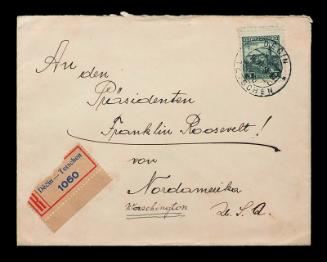 DĚČÍN
TETSCHEN
An den
Präsidenten
Franklin Roosevelt!
von
Nordamerika
Waschington
U.S.A.
Děčín — Tetschen
1060